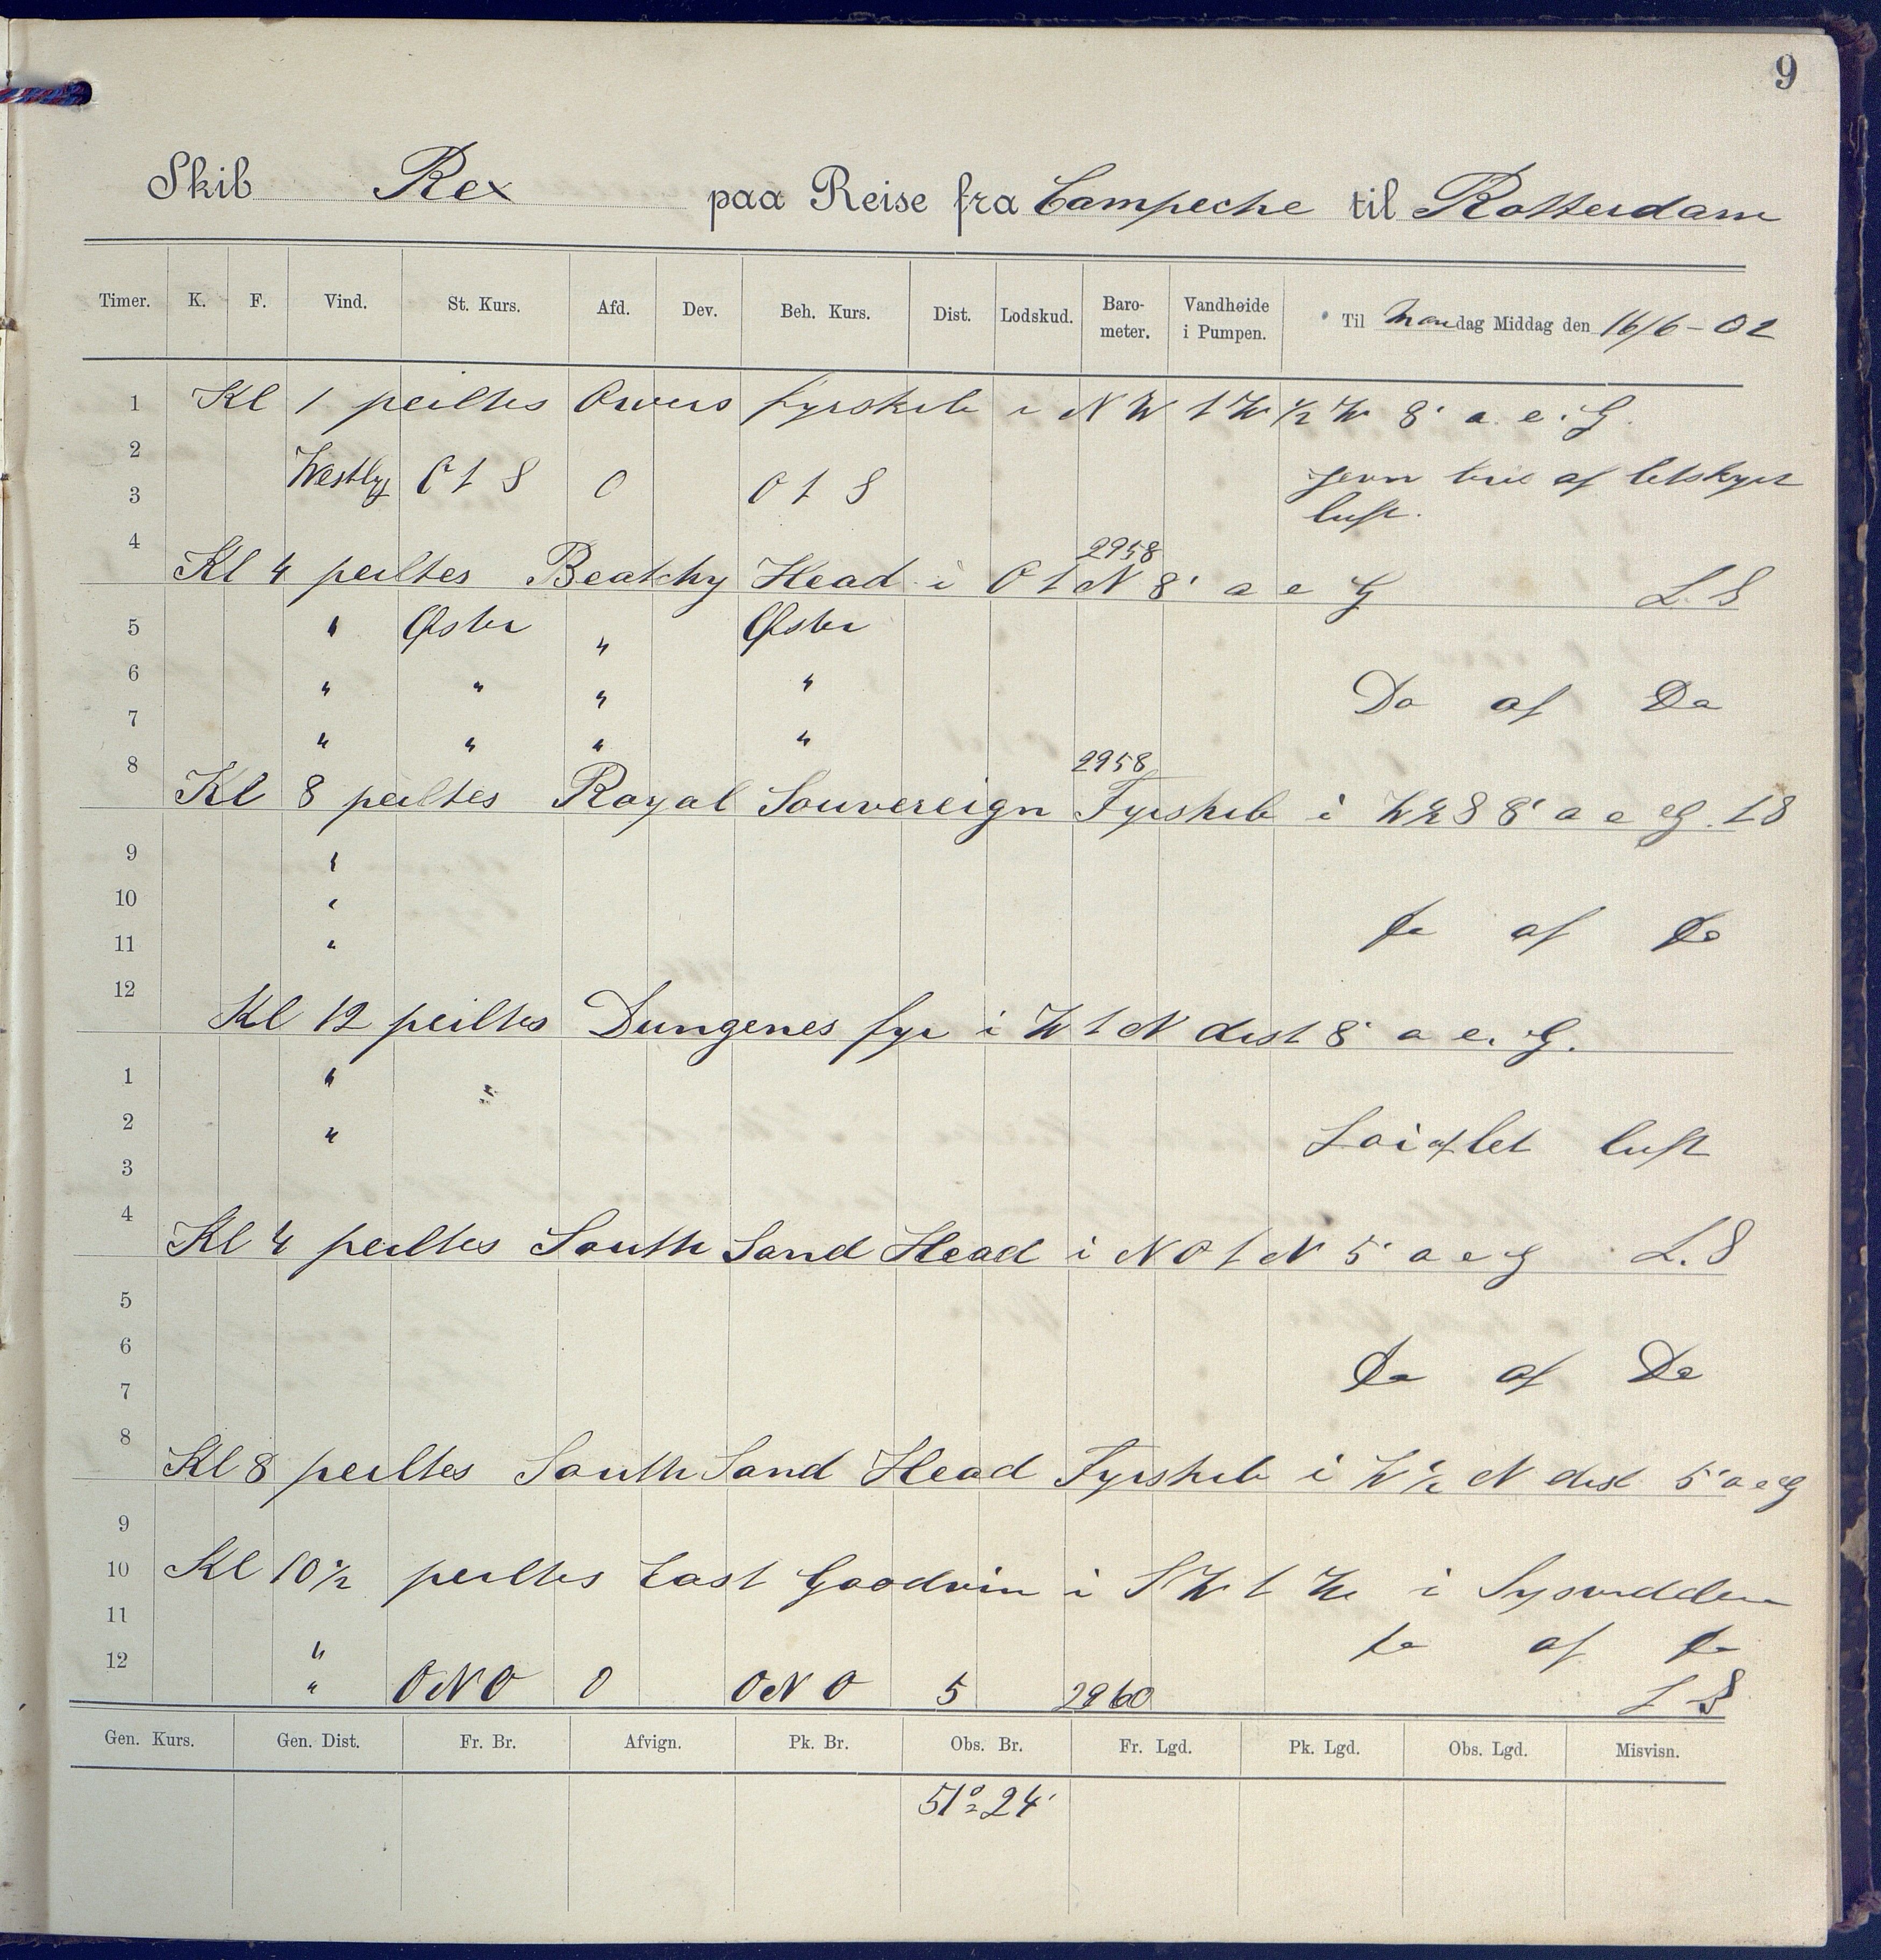 9
Skib Rex paa Reise fra Campeche til Rotterdam
Timer. K. F. Vind. St. Kurs. Afd. Dev. Beh. Kurs. Dist. Lodskud. Baro-meter. Vandhøide i Pumpen. Til Mandag Middag den 16/6-02
1 Kl 1 peiltes Owers fyrskib i NW t W 1/2 W 8' a. e. G.
2
Westlig O t S 0 O t S jevn bris af letskyet
3
luft.
4 2958
Kl 4 peiltes Beatchy Head i O t N 8' a e G L. S
5 " Øster " Øster
6 " " " " Do af Do
7 " " " "
8 2958
Kl 8 peiltes Royal Souvereign Fyrskib i 8' a e G. LS
9 "
10 " Do af Do
11 "
12
Kl 12 peiltes Dungenes fyr i W t N dist 8' a e. G.
1 " "
2 " Loi af let luft
3
4
Kl 4 peiltes South Sand Head i N O t N 5' a e G L. S
5
6 Do af Do
7
8
Kl 8 peiltes South Sand Head Fyrskib i W 1/2 N dist 5' a e G
9
10 Kl 10 1/2 peiltes East Goodvin i S W t W i Synsvidden
11 " Do af Do
12 " ONO 0 ONO 5 2960 L S
Gen. Kurs. Gen. Dist. Fr. Br. Afvign. Pk. Br. Obs. Br. Fr. Lgd. Pk. Lgd. Obs. Lgd. Misvisn.
51° 24'